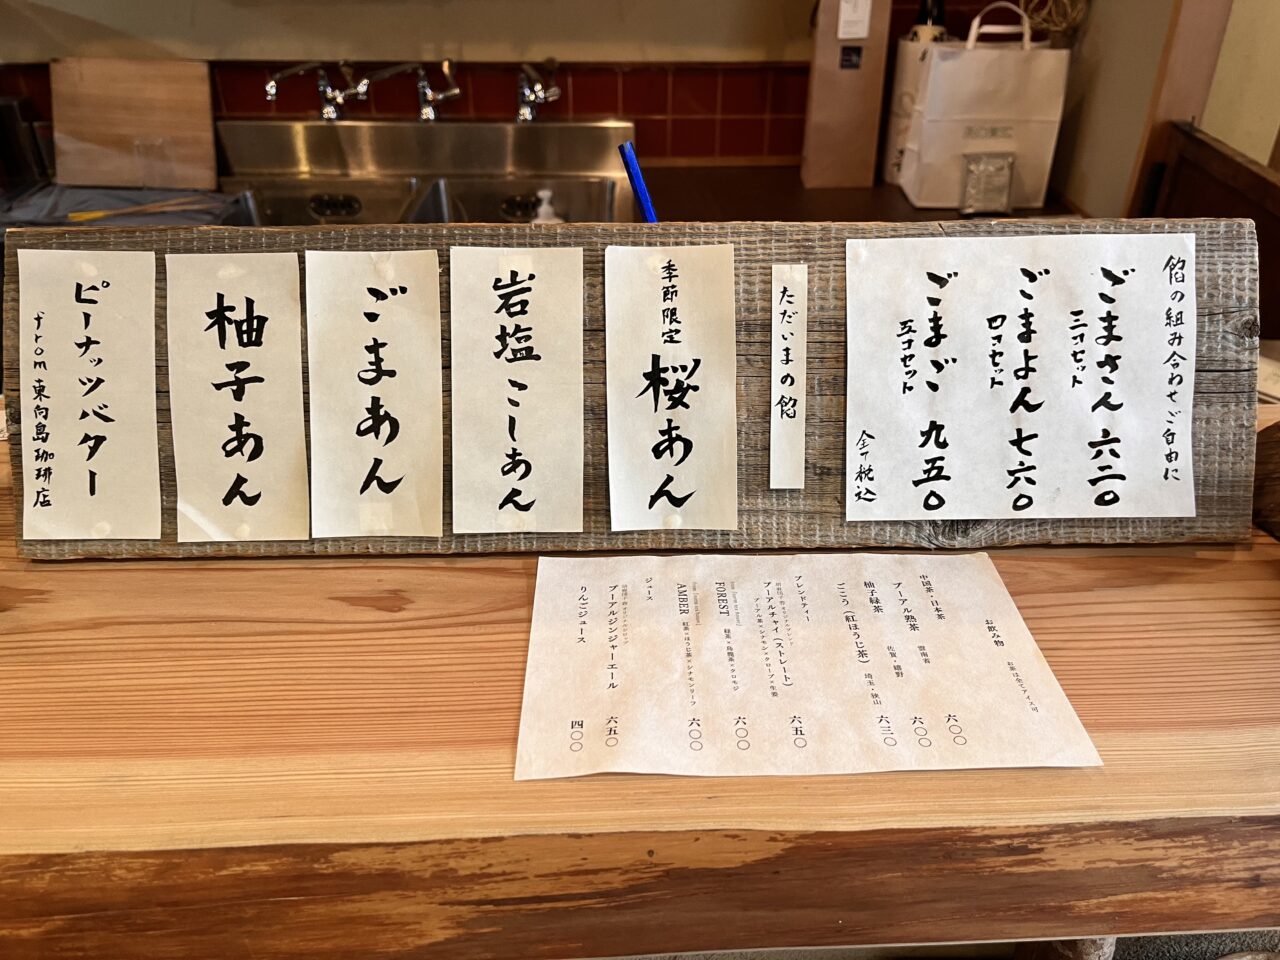 餡の組み合わせご自由に
ごまさん 六二〇
三コセット
ごまよん 七六〇
四コセット
ごまご 九五〇
五コセット
全て税込
ただいまの餡
季節限定 桜あん
岩塩こしあん
ごまあん
柚子あん
ピーナッツバター
from 東向島珈琲店
お飲み物 お茶は全てアイス可
中国茶・日本茶
プーアル熟茶 雲南省 六〇〇
柚子緑茶 佐賀・嬉野 六〇〇
ごこう（紅ほうじ茶） 埼玉・狭山 六三〇
ブレンドティー
プーアルチャイ（ストレート） 六五〇
プーアル茶×シナモン×クローブ×生姜
FOREST 緑茶×烏龍茶×クロモジ 六〇〇
AMBER 紅茶×ほうじ茶×シナモンリーフ 六〇〇
ジュース
プーアルジンジャーエール 六五〇
りんごジュース 四〇〇